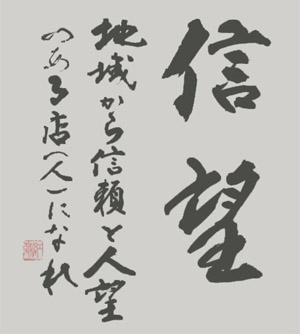 信望
地域から信頼と人望
のある店(人)になれ